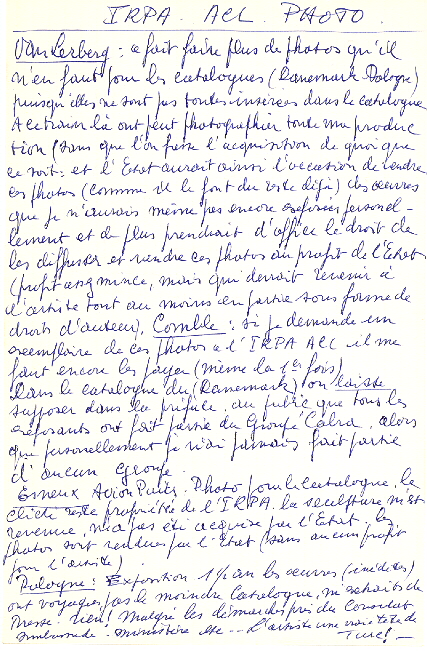 IRPA. ACL PHOTO.
Van Lerberg: a fait faire plus de photos qu'il
n'en faut pour les catalogues (Danemark Pologne)
puisqu'elles ne sont pas toutes insérées dans le catalogue
A ce train là on peut photographier toute ma produc
tion (sans que l'on fasse l'acquisition de quoi que
ce soit: et l'Etat aurait ainsi l'occasion de vendre
ces photos (comme il le font du reste déjà) des œuvres
que je n'aurais même pas encore exposées personel-
lement et de plus prendrait d'office le droit de
les diffuser et vendre ces photos au profit de l'Etat
(profit assez mince, mais qui devrait revenir à
l'artiste tout au moins en partie sous forme de
droits d'auteur). Comble: si je demande un
exemplaire de ces photos a l'IRPA ACL il me
faut encore les payer (même la 1er fois)
Dans le catalogue du (Danemark) on laisse
supposer dans la préface, au public que tous les
exposants ont fait partie du Groupe Cobra, alors
que personellement je n'ai jamais fait partie
d'aucun Groupe.
Esneux Photo pour le catalogue, le
cliché reste propriété de l'IRPA. la sculpture m'est
revenue, n'a pas été acquise par l'Etat, les
photos sont vendues par l'Etat (sans aucun profit
pour l'artiste)
Pologne: Exposition 1½ an les œuvres (inédites)
ont voyagés, pas le moindre catalogue, ni extraits de
Presse. rien! Malgré les démarches près du Consulat
Ambassade - ministère etc -- L'artiste une vraie tête de
Turc! -